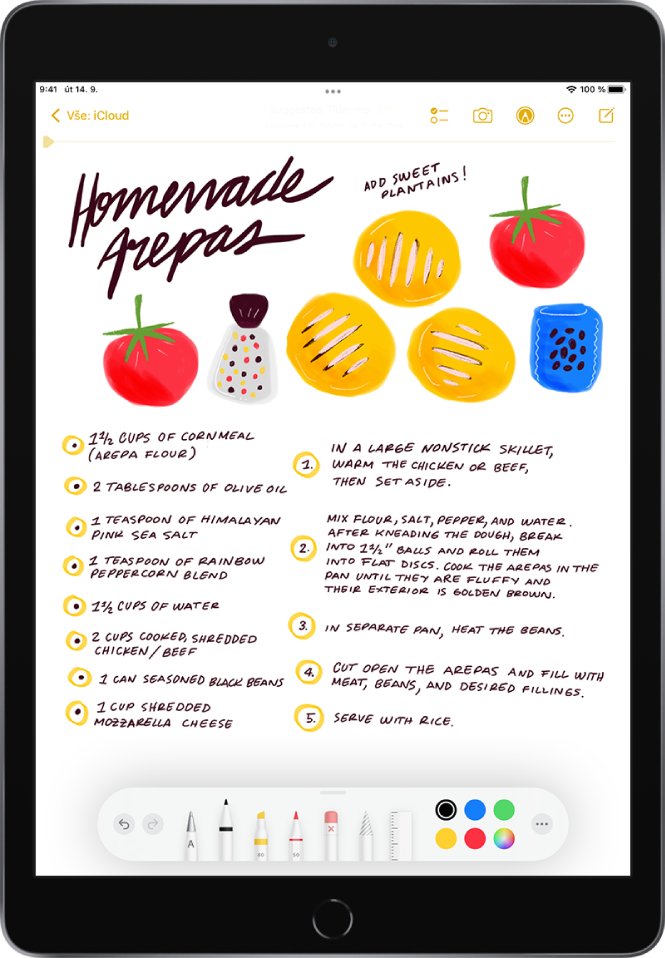 9:41 út 14. 9.
100 %
Vše: iCloud
Homemade
Arepas
ADD SWEET
PLANTAINS!
1 1/2 CUPS OF CORNMEAL
(AREPA FLOUR)
2 TABLESPOONS OF OLIVE OIL
1 TEASPOON OF HIMALAYAN
PINK SEA SALT
1 TEASPOON OF RAINBOW
PEPPERCORN BLEND
1 1/2 CUPS OF WATER
2 CUPS COOKED, SHREDDED
CHICKEN/BEEF
1 CAN SEASONED BLACK BEANS
1 CUP SHREDDED
MOZZARELLA CHEESE
1. IN A LARGE NONSTICK SKILLET,
WARM THE CHICKEN OR BEEF,
THEN SET ASIDE.
2. MIX FLOUR, SALT, PEPPER, AND WATER.
AFTER KNEADING THE DOUGH, BREAK
INTO 1 1/2" BALLS AND ROLL THEM
INTO FLAT DISCS. COOK THE AREPAS IN THE
PAN UNTIL THEY ARE FLUFFY AND
THEIR EXTERIOR IS GOLDEN BROWN.
3. IN SEPARATE PAN, HEAT THE BEANS.
4. CUT OPEN THE AREPAS AND FILL WITH
MEAT, BEANS, AND DESIRED FILLINGS.
5. SERVE WITH RICE.
A
80
50